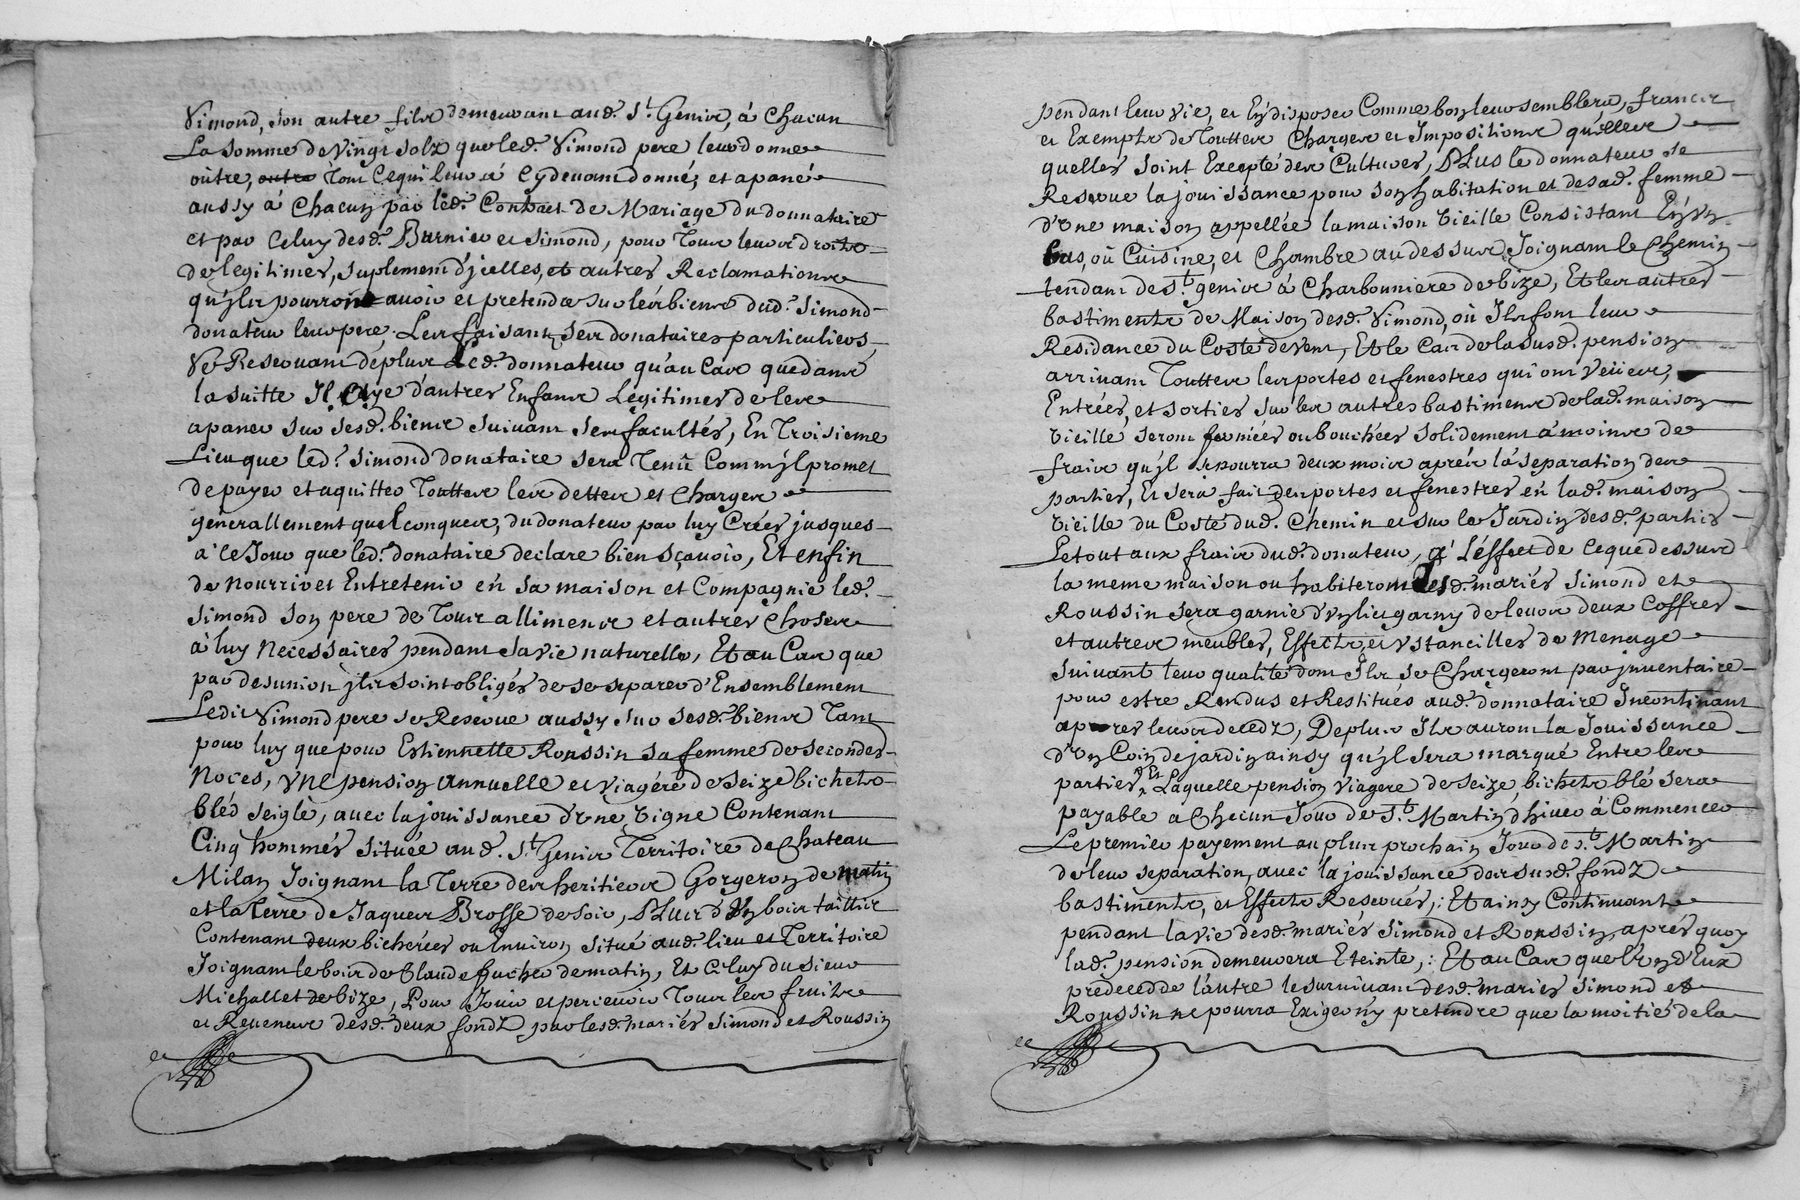 Simond, son autre fils demeurant aud. St. Genix, à chacun
La somme de vingt solz que led. Simond pere leur donne
outre, outre tout ce qui leur a cydevant donné, et apané
aussy à chacun par led. Contract de Mariage du donnataire
et par celuy desd. Barnier et Simond, pour tous leurs droits
de legitimes, suplement d'jcelles, et autres Reclamations
qu'jls pourront avoir et pretendre sur les biens dud. Simond
donateur leur pere. Les faisant ses donataires particuliers,
Se Reservant de plus Led. donnateur qu'au cas que dans
la suitte Il aye d'autres Enfans Legitimes de les
apaner sur sesd. biens suivant ses facultés, En Troisieme
Lieu que led. Simond donataire sera Tenû Comm'jl promet
de payer et aquitter Touttes les dettes et charges
generallement quelconques, du donateur par luy Créés jusques
a ce Jour que led. donataire declare bien sçavoir, Et enfin
de nourrir et Entretenir en sa maison et Compagnie led.
Simond son pere de Tous allimens et autres choses
à luy Necessaires pendant sa vie naturelle, Et au Cas que
par desunion jls soint obligés de se separer d'Ensemblement
Ledit Simond pere se Reserve aussy sur sesd. biens Tant
pour luy que pour Estiennette Roussin sa femme de secondes
Noces, une pension annuelle et viagère de seize bichets
bléd seigle, avec la jouissance d'une vigne Contenant
Cinq hommés située aud. St. Genix Territoire de Chateau
Milan Joignant la Terre des heritiers Gorgeron de matin
et la terre de Jaques Brosse de soir, Plus d'un bois taillis
Contenant deux bicherées ou Environ situé aud. lieu et Territoire
Joignant le bois de Claude fucher de matin, Et Celuy du sieur
Michallet de bize, Pour Jouir et percevoir Tous les fruits
et Revenus desd. deux fondz par lesd. mariés Simond et Roussin
pendant leur vie, et En disposer Comme bon leur semblera, francs
et Exempts de Touttes Charges et Impositions qu'elles
quelles soint Excepté des Cultures, Plus le donnateur se
Reserve la jouissance pour son habitation et de sad. femme
d'une maison appellée la maison vieille Consistant En un
bas, ou Cuisine, et Chambre au dessus Joignant le Chemin
tendant de St. genix à Charbonniere de bize, Et les autres
bastiments de Maison desd. Simond, où Ils font leur
Residance du Costé de vent, Et le Cas de la susd. pension
arrivant Touttes les portes et fenestres qui ont veües,
Entrées, et sorties sur les autres bastimens de lad. maison
vieille seront fermées ou bouchées solidement à moins de
frais qu'jl se pourra deux mois après la separation des
parties, Et sera fait des portes et fenestres en lad. maison
vieille du Costé dud. Chemin et sur le Jardin desd. parties
Le tout aux frais dud. donateur, à l'éffect de ce que dessus
la meme maison ou habiteront Lesd. mariés Simond et
Roussin sera garnie d'un lit garny de leurs deux Coffres
et autres meubles, Effects et ustancilles de menage
suivant leur qualité dont Ils se Chargeront par jnventaire
pour estre Rendus et Restitués aud. donnataire Incontinant
apres leurs decedz, De plus Ils auront la Jouissance
d'un Coin de jardin ainsy qu'jl sera marqué Entre les
parties, Et Laquelle pension viagere de seize bichets blé sera
payable a Chacun Jour de St. Martin d'hiver à Commencer
Le premier payement au plus prochain Jour de St. Martin
de leur separation, avec la jouissance des susd. fondz
bastiments, et Effects Reservés,: Et ainsy Continuant
pendant la vie desd. mariés Simond et Roussin, après quoy
lad. pension demeurera Eteinte,: Et au Cas que l'un d'Eux
prédecedde l'autre le survivant desd. mariés Simond et
Roussin ne pourra Exiger ny pretendre que la moitié de la